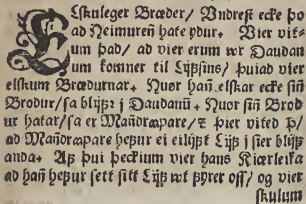 ELskuleger Brœder/ Vndrest ecke þo
ad Heimuren̄ hate ydur. Vier vit-
um þad/ ad vier erum wr Daudan
um komner til Lijfsins/ þuiad vier
elskum Brœdurnar. Huer han̄ elskar ecke sin̄
Brodur/ sa blijfr j Daudanū. Huor sin̄ Brod
ur hatar/ sa er Man̄drapare/ ꝛ þier vited þ/
ad Man̄drapare hefur ei eilijft Lijf j sier blijf
anda. Af þui þeckium vier hans Kiœrleika
ad han̄ hefur sett sitt Lijf wt fyrer oss/ og vier
skulum